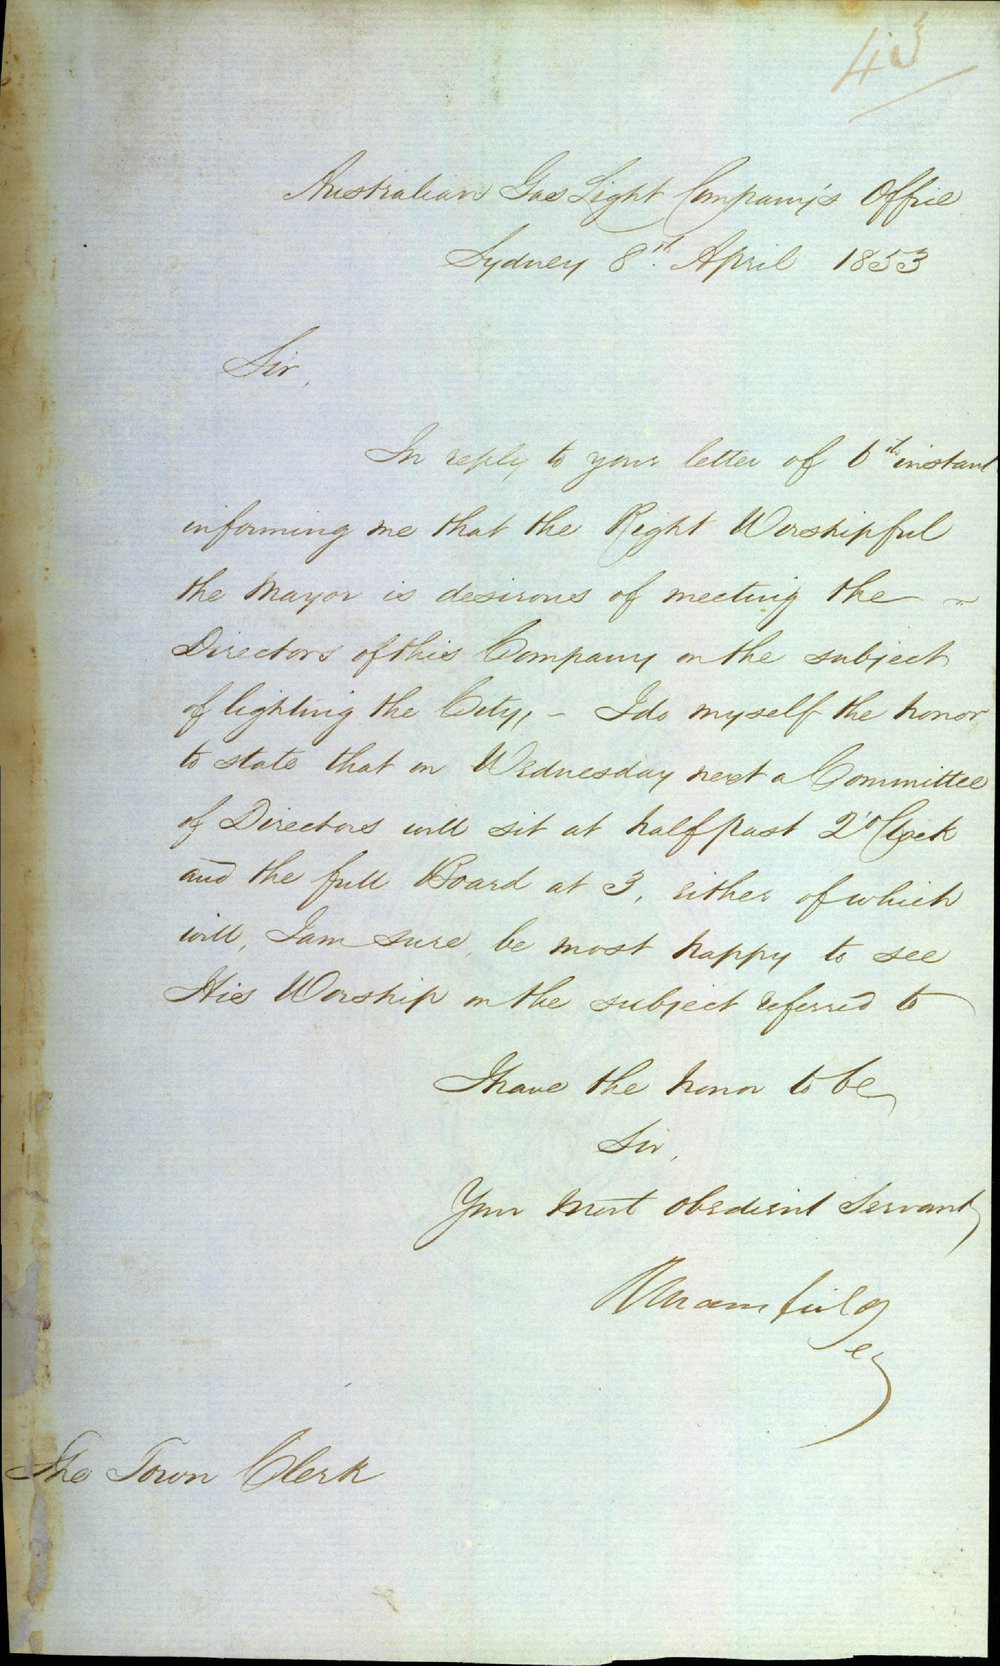 43
Australian Gas Light Company's Office
Sydney 8th. April 1853
Sir,
In reply to your letter of 6th instant
informing me that the Right Worshipful
the Mayor is desirous of meeting the ~
Directors of this Company on the subject
of lighting the City, - I do myself the honor
to state that on Wednesday next a Committee
of Directors will sit at half past 2 o'Clock
and the full Board at 3, either of which
will, I am sure, be most happy to see
His Worship on the subject referred to
I have the honor to be
Sir,
Your most obedient Servant
Mansfield
The Town Clerk